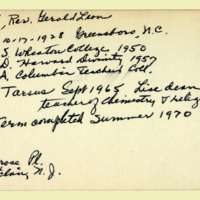 , Rev. Gerald Leon
10-17-1928 Greensboro, N.C.
S Wheaton College 1950
D. Harvard Divinity 1957
A. Columbia Teachers Coll.
Tarsus Sept 1965 Lise dean
teacher of chemistry & relig
Term completed Summer 1970
rose Pl.
clair, N.J.